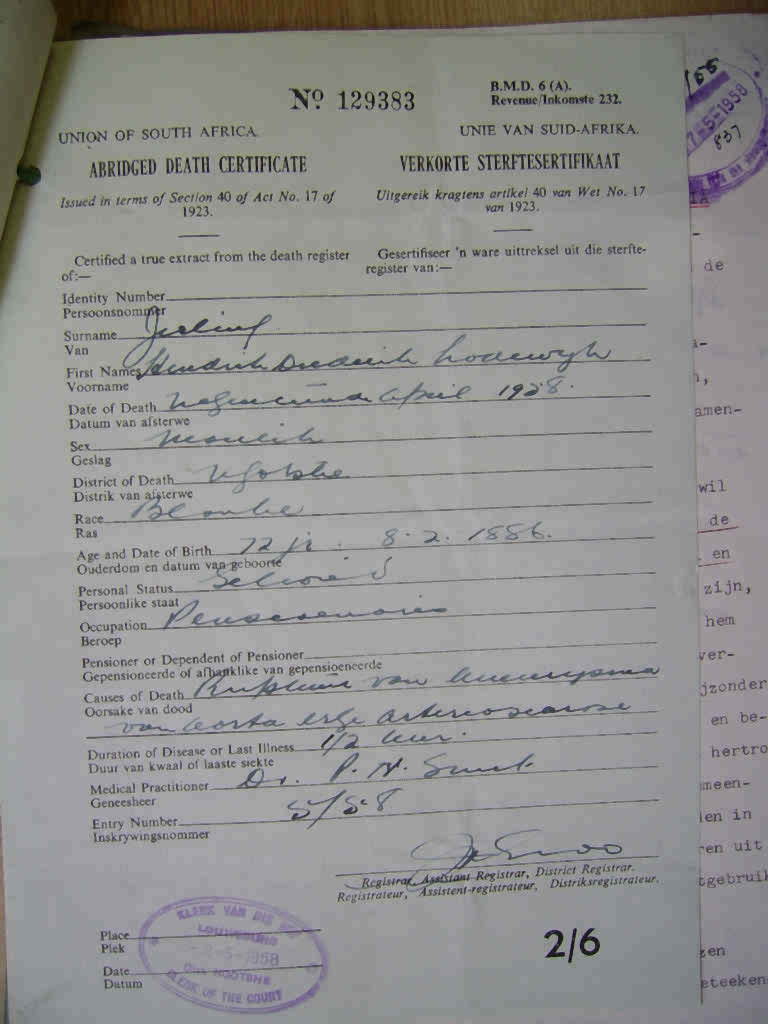 Nº 129383
B.M.D. 6 (A).
Revenue/Inkomste 232.
UNION OF SOUTH AFRICA.
UNIE VAN SUID-AFRIKA.
ABRIDGED DEATH CERTIFICATE
VERKORTE STERFTESERTIFIKAAT
Issued in terms of Section 40 of Act No. 17 of
1923.
Uitgereik kragtens artikel 40 van Wet No. 17
van 1923.
Certified a true extract from the death register
of:—
Gesertifiseer 'n ware uittreksel uit die sterfte-
register van:—
Identity Number
Persoonsnommer
Surname
Van
First Names Hendrik Diederik Lodewyk
Voorname
Date of Death April 1958.
Datum van afsterwe
Sex Manlik
Geslag
District of Death
Distrik van afsterwe
Race Blanke
Ras
Age and Date of Birth 72 jr. 8.2.1886.
Ouderdom en datum van geboorte
Personal Status Geskei
Persoonlike staat
Occupation Pensioenaris
Beroep
Pensioner or Dependent of Pensioner
Gepensioneerde of afhanklike van gepensioeneerde
Causes of Death van Aneurysma
Oorsake van dood
van aorta
Duration of Disease or Last Illness 1/2 uur.
Duur van kwaal of laaste siekte
Medical Practitioner Dr. P. N. Smit
Geneesheer
Entry Number 5/58
Inskrywingsnommer
Registrar, Assistant Registrar, District Registrar.
Registrateur, Assistent-registrateur, Distriksregistrateur.
Place
Plek
Date
Datum
KLERK VAN DIE HOF
-5-1958
CLERK OF THE COURT
2/6
7-5-1958
837
de
amen-
wil
de
en
zijn,
hem
ver-
jzonder
en be-
hertro
meen-
len in
ren uit
tgebruik
zen
eteeken-